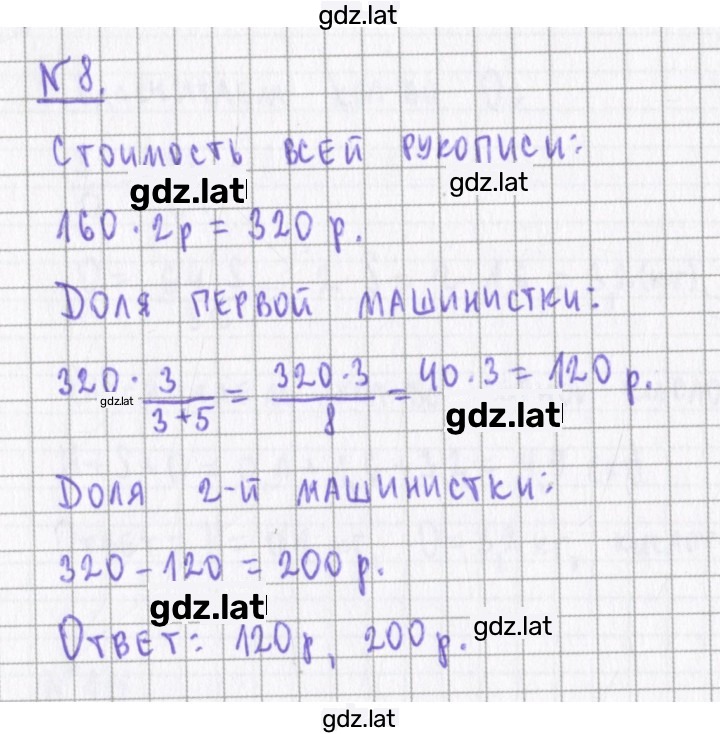 gdz.lat
N 8.
Стоимость всей рукописи:
gdz.lat gdz.lat
160 · 2р = 320 р.
Доля первой машинистки:
320 · 3/(3+5) = 320·3/8 = 40 · 3 = 120 р.
gdz.lat gdz.lat
Доля 2-й машинистки:
320 - 120 = 200 р.
gdz.lat gdz.lat
Ответ: 120 р, 200 р.
gdz.lat